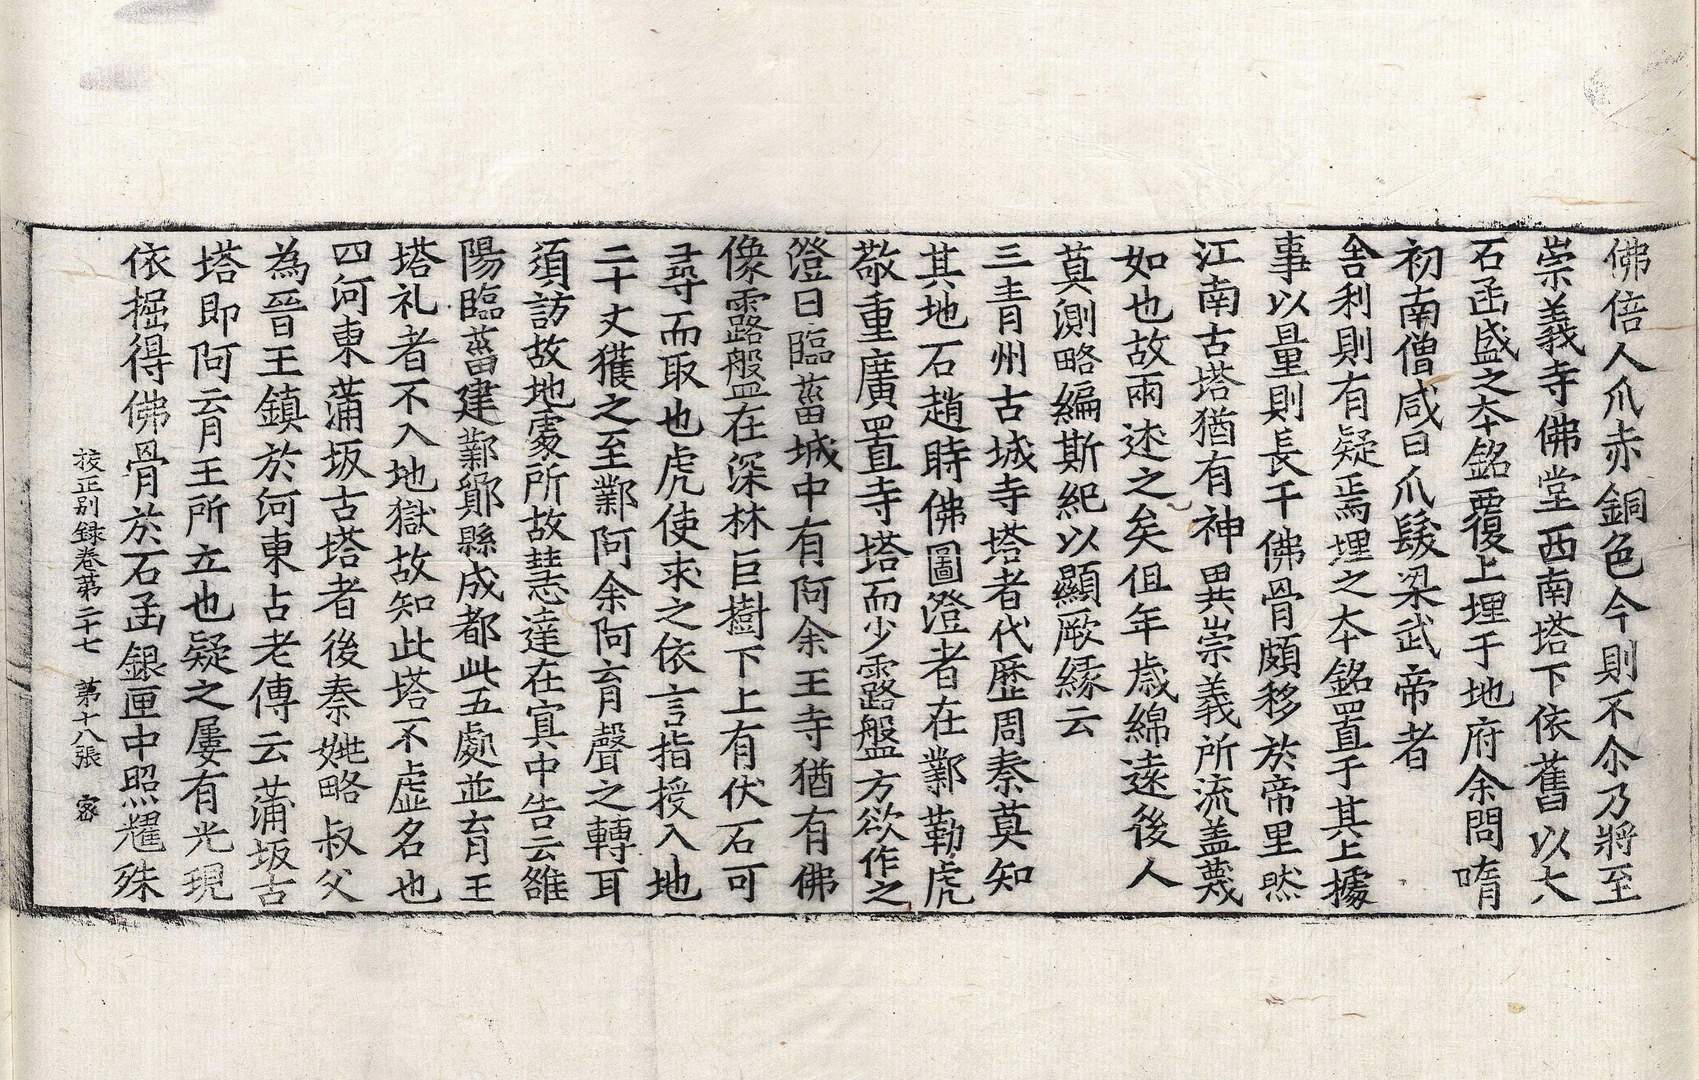 佛倍人爪赤銅色今則不尒乃將至
崇義寺佛堂西南塔下依舊以大
石函盛之本銘覆上埋于地府余問隋
初南僧咸曰爪髮梁武帝者
舍利則有疑焉埋之本銘置于其上據
事以量則長干佛骨頗移於帝里然
江南古塔猶有神異崇義所流盖蔑
如也故兩述之矣但年歲綿遠後人
莫測略編斯紀以顯厥縁云
三青州古城寺塔者代歷周秦莫知
其地石趙時佛圖澄者在鄴勒虎
敬重廣置寺塔而少露盤方欲作之
澄曰臨菑城中有阿余王寺猶有佛
像露盤在深林巨樹下上有伏石可
尋而取也虎使求之依言指授入地
二十丈獲之至鄴阿余阿育聲之轉耳
須訪故地處所故慧達在冥中告云雒
陽臨菑建鄴鄮縣成都此五處並育王
塔礼者不入地獄故知此塔不虛名也
四河東蒲坂古塔者後秦姚略叔父
為晉王鎮於河東占老傳云蒲坂古
塔即阿育王所立也疑之屢有光現
依掘得佛骨於石函銀匣中照耀殊
校正別録卷第二十七　第十八張　宻